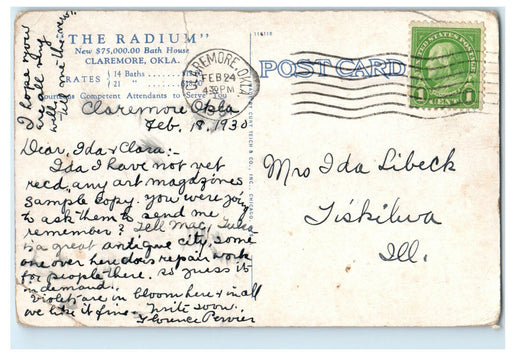 "THE RADIUM"
New $75,000.00 Bath House
CLAREMORE, OKLA.
RATES { 14 Baths
21 "
Competent Attendants to Serve You
116118
CLAREMORE, OKLA.
FEB 24
PM
POST CARD
UNITED STATES POSTAGE
1 CENT 1
I hope you
are all very
well.
Claremore Okla
Feb. 18, 1930
Dear, Ida & Clara:-
Ida I have not yet
recd, any art magazines
sample copy. You were going
to ask them to send me
remember? Tell Mac, Tulsa
is a great antique city, some
one over here does repair work
for people there. So guess it
in demand.
Violets are in bloom here & in all
we like it fine. Write soon.
Florence
Mrs Ida Libeck
Tiskilwa
Ill.